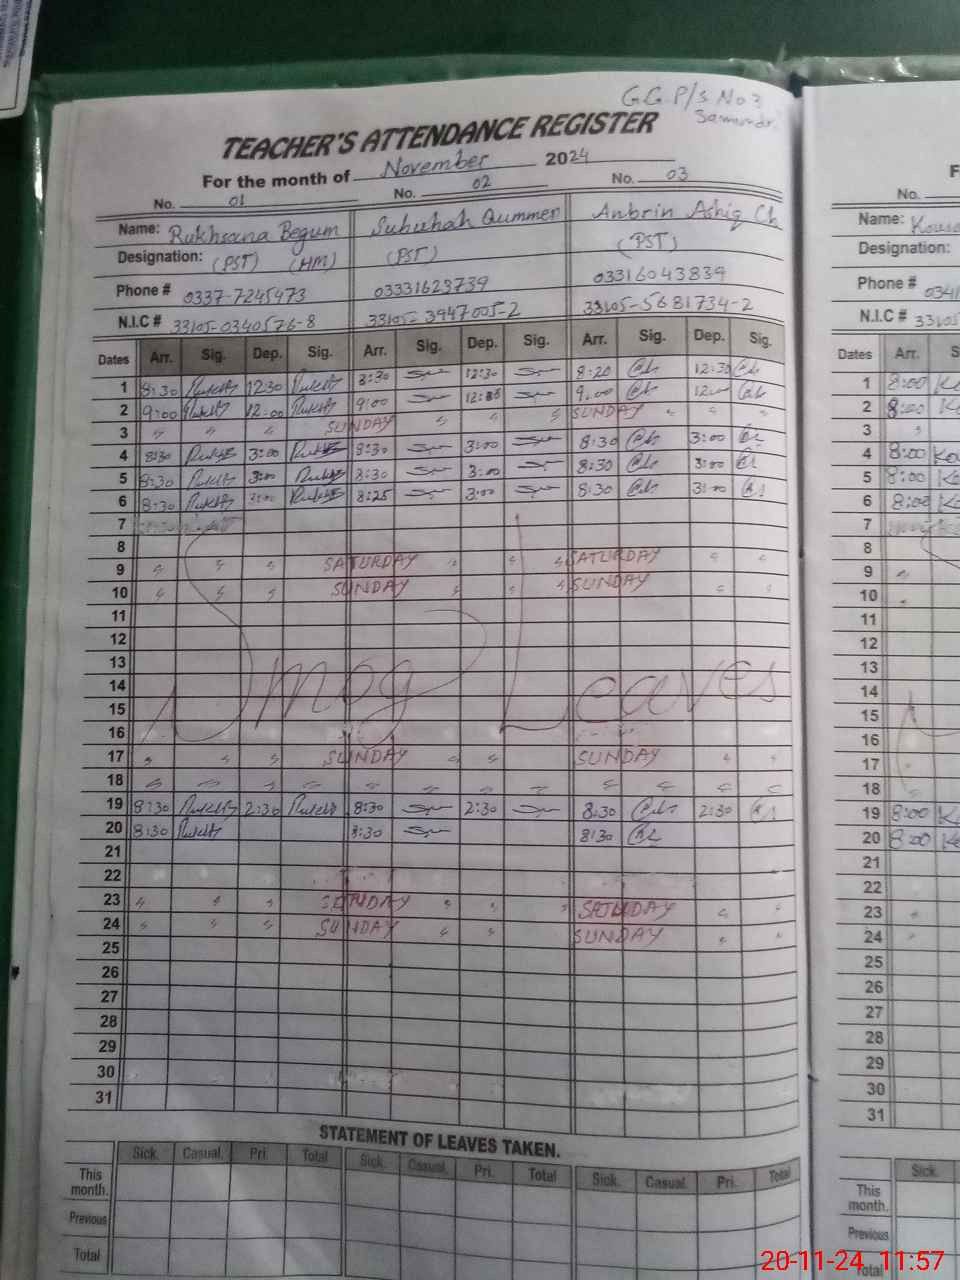 G.G.P/S No 3
TEACHER'S ATTENDANCE REGISTER
For the month of November 2024
No. 01 No. 02 No. 03
Name: Rukhsana Begum Anbrin Ashiq Ch
Designation: (PST) (HM) (PST) (PST)
Phone # 0337-7245973 03331623739 03316043839
N.I.C # 33105-0340576-8 33105-3947005-2 33105-5681734-2
Dates Arr. Sig. Dep. Sig. Arr. Sig. Dep. Sig. Arr. Sig. Dep. Sig.
1 8:30 12:30 8:30 12:30 8:20 12:30
2 9:00 12:00 9:00 9:00
3 " " " SUNDAY " " " SUNDAY " " "
4 8:30 3:00 8:30 3:00 8:30 3:00
5 8:30 3:00 8:30 3:00 8:30 3:00
6 8:30 3:00 8:25 3:00 8:30 3:00
7
8
9 " " " SATURDAY " " " SATURDAY " "
10 " " " SUNDAY " " " SUNDAY " "
11
12
13
14
Smog Leaves
15
16
17 " " " SUNDAY " " SUNDAY " "
18 " " " " " " " " " " " "
19 8:30 2:30 8:30 2:30 8:30 2:30
20 8:30 8:30 8:30
21
22
23 " " " " " " SATURDAY " "
24 " " " SUNDAY " " SUNDAY " "
25
26
27
28
29
30
31
STATEMENT OF LEAVES TAKEN.
Sick. Casual. Pri. Total Sick. Casual. Pri. Total Sick. Casual. Pri. Total
This month.
Previous
Total
No.
Name:
Designation:
Phone #
N.I.C # 33105
Dates Arr.
1 8:00
2 8:00
3 "
4 8:00
5 8:00
6 8:00
7
8
9
10
11
12
13
14
15
16
17
18
19 8:00
20 8:00
21
22
23
24
25
26
27
28
29
30
31
Sick.
This month.
Previous
Total
20-11-24 11:57